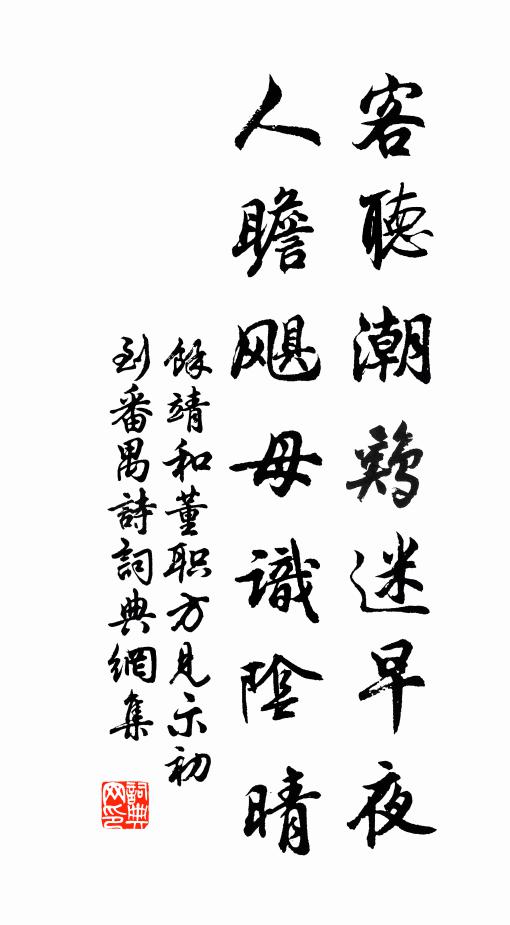 客聽潮鷄迷早夜
人瞻颶母識陰晴
餘靖和董职方見示初
到番禺詩詞典網集
詞典网印